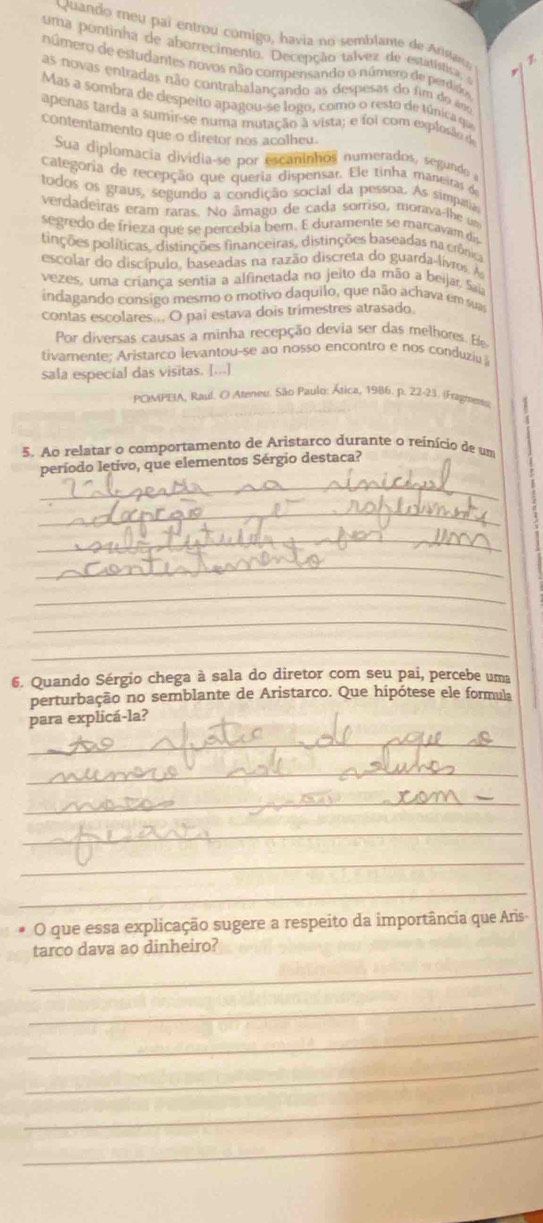 Quando meu pai entrou comigo, havia no semblante de Aristarco
uma pontinha de aborrecimento. Decepção talvez de estatística: o
número de estudantes novos não compensando o número de perdidos,
as novas entradas não contrabalançando as despesas do fim do ano.
Mas a sombra de despeito apagou-se logo, como o resto de túnica que
apenas tarda a sumir-se numa mutação à vista; e foi com explosão de
contentamento que o diretor nos acolheu.
Sua diplomacia dividia-se por escaninhos numerados, segundo a
categoria de recepção que queria dispensar. Ele tinha maneiras de
todos os graus, segundo a condição social da pessoa. As simpatias
verdadeiras eram raras. No âmago de cada sorriso, morava-lhe um
segredo de frieza que se percebia bem. E duramente se marcavam dis-
tinções políticas, distinções financeiras, distinções baseadas na crônica
escolar do discípulo, baseadas na razão discreta do guarda-livros. Às
vezes, uma criança sentia a alfinetada no jeito da mão a beijar. Saía
indagando consigo mesmo o motivo daquilo, que não achava em suas
contas escolares... O pai estava dois trimestres atrasado.
Por diversas causas a minha recepção devia ser das melhores. Efe-
tivamente; Aristarco levantou-se ao nosso encontro e nos conduziu à
sala especial das visitas. [...]
POMPEIA, Raul. O Ateneu. São Paulo: Ática, 1986. p. 22-23. (Fragmento)
7.
5. Ao relatar o comportamento de Aristarco durante o reinício de um
período letivo, que elementos Sérgio destaca?
na inicial
por um
6. Quando Sérgio chega à sala do diretor com seu pai, percebe uma
perturbação no semblante de Aristarco. Que hipótese ele formula
para explicá-la?
de que o
numero de alunos
novos com -
• O que essa explicação sugere a respeito da importância que Aris-
tarco dava ao dinheiro?